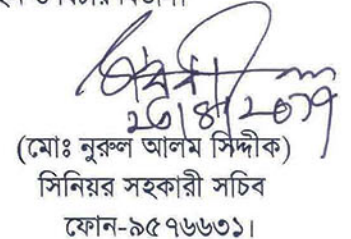 ২৩/৪/২০১৭
(মোঃ নুরুল আলম সিদ্দীক)
সিনিয়র সহকারী সচিব
ফোন-৯৫৭৬৬৩১।